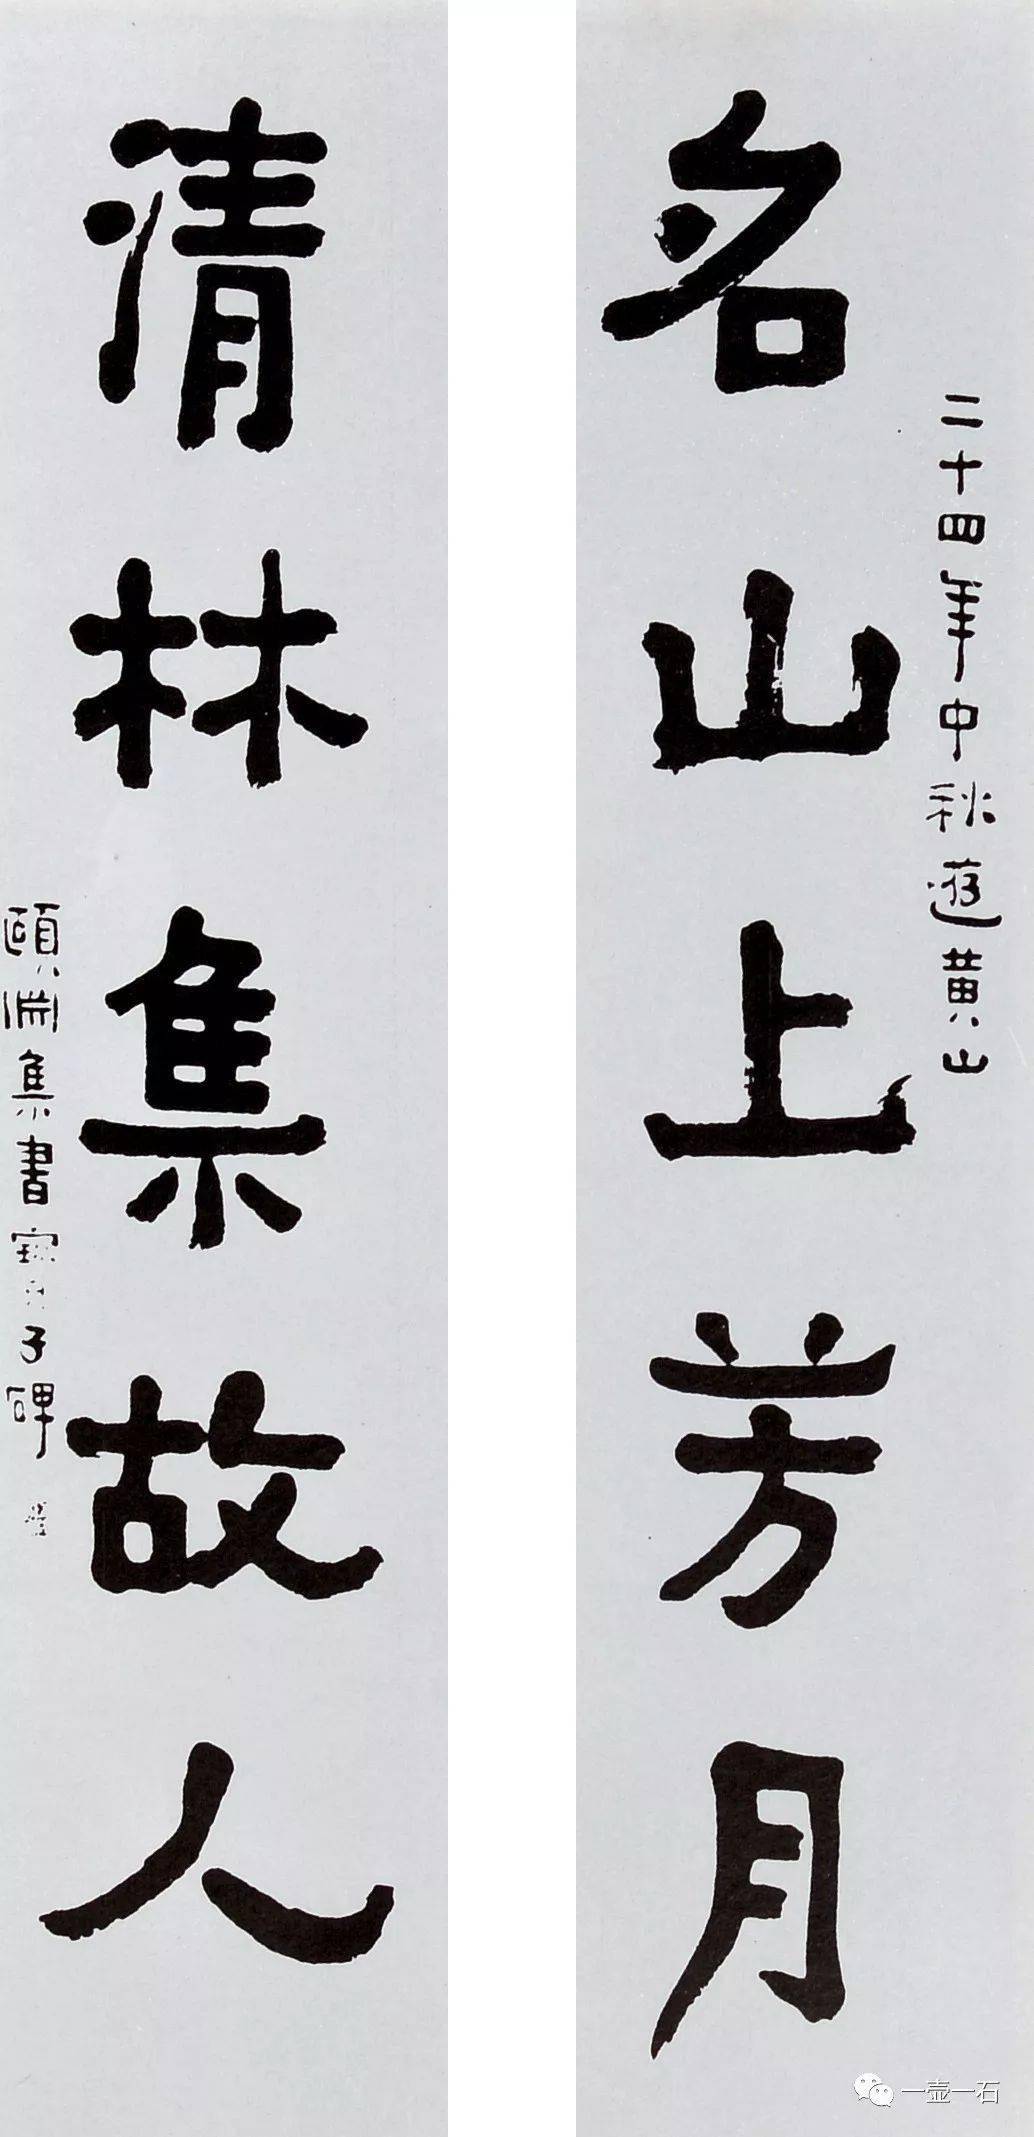 二十四年中秋遊黄山
名山上芳月
清林集故人
頤淵集書寳子碑
一壶一石